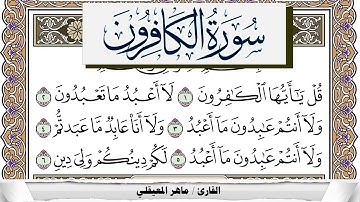 سُورَةُ الْكَافِرُونَ
قُلْ يَٰٓأَيُّهَا ٱلْكَٰفِرُونَ ١ لَآ أَعْبُدُ مَا تَعْبُدُونَ ٢
وَلَآ أَنتُمْ عَٰبِدُونَ مَآ أَعْبُدُ ٣ وَلَآ أَنَا۠ عَابِدٌ مَّا عَبَدتُّمْ ٤
وَلَآ أَنتُمْ عَٰبِدُونَ مَآ أَعْبُدُ ٥ لَكُمْ دِينُكُمْ وَلِىَ دِينِ ٦
القارئ / ماهر المعيقلي